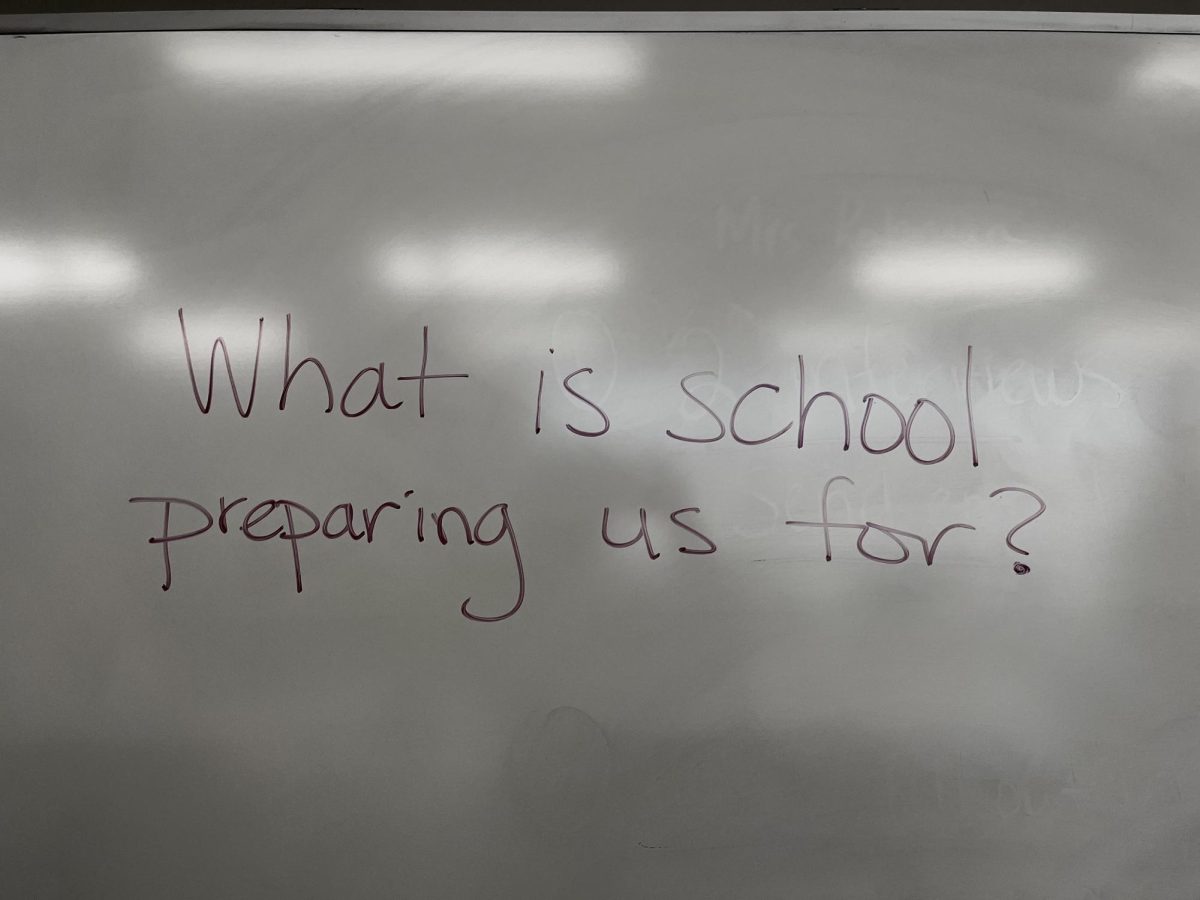 What is school
preparing us for?